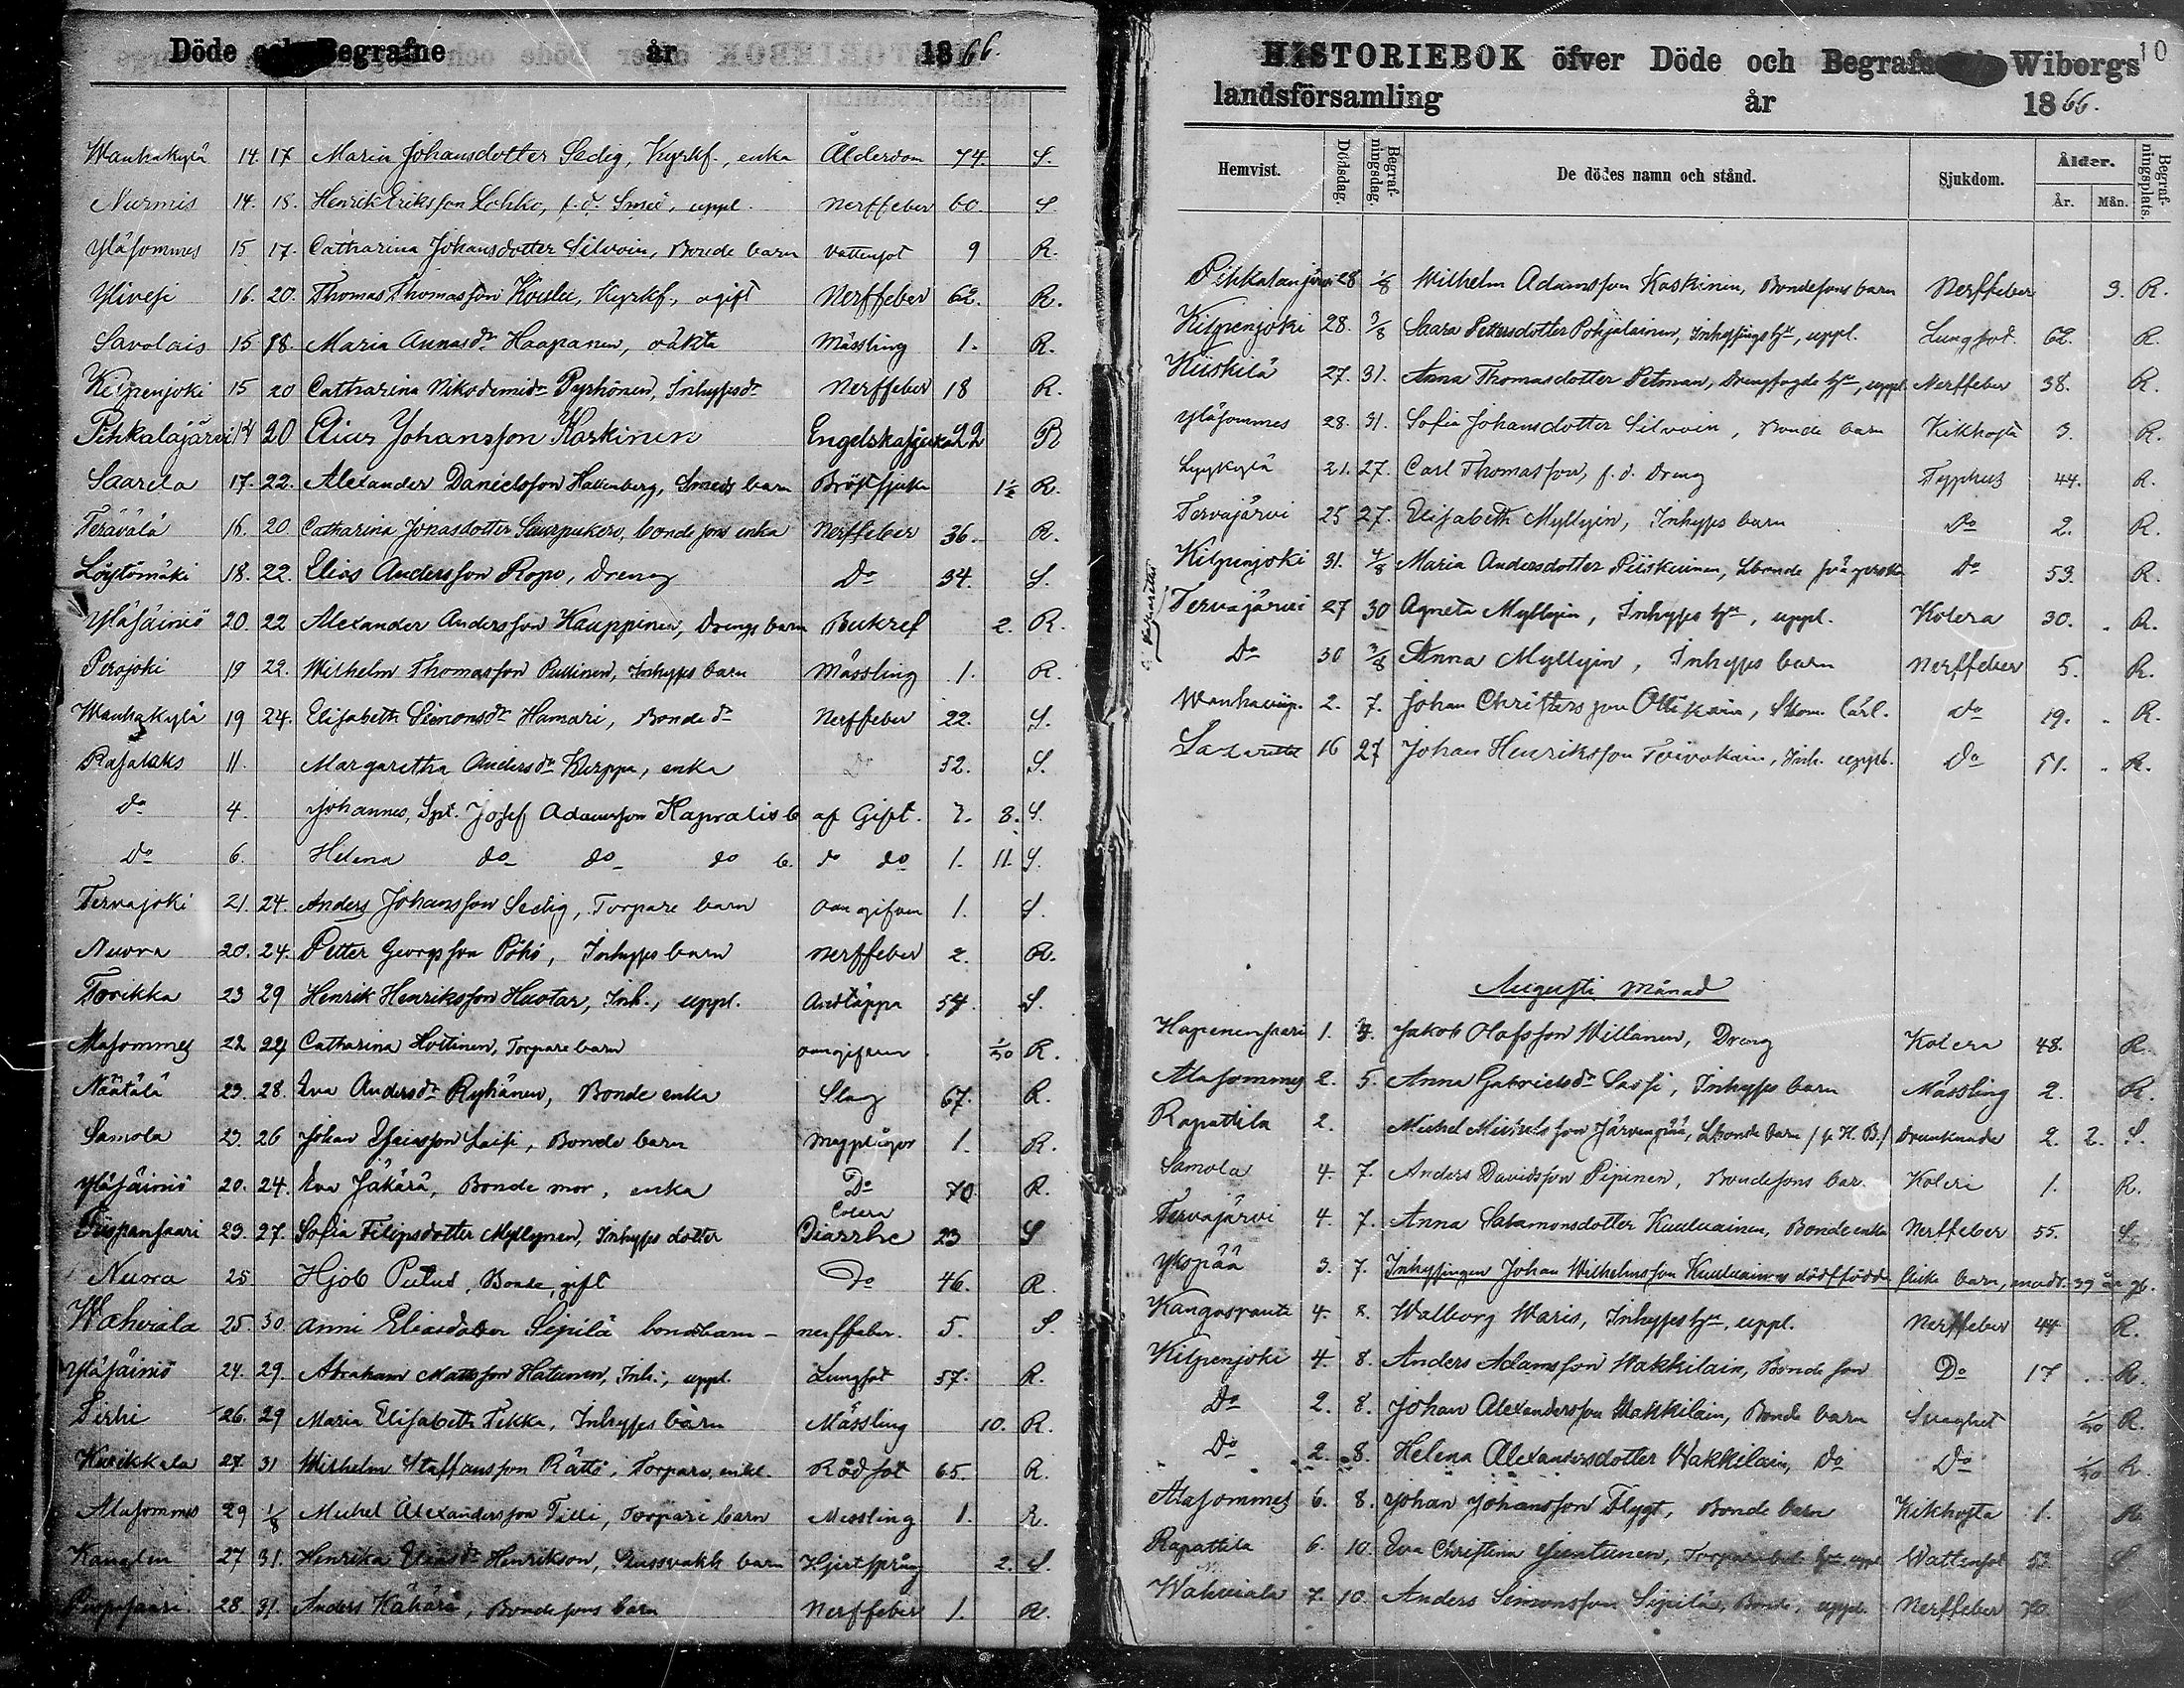 Döde och Begrafne år 1866.
Wanhakylä 14. 17 Maria Johansdotter Sedig, Kyrkf., enka Ålderdom 74. S.
Nurmis 14. 18. Henrik Eriksson Lohko, f.d. Smed, uppl. Nerffeber 60. S.
Yläsommes 15 17. Catharina Johansdotter Silvoin, Bonde barn Vattusot 9 R.
Ylivesi 16. 20. Thomas Thomasson Koulu, Kyrkf., ogift Nerffeber 62. R.
Savolais 15 18. Maria Annasdr Haapanen, oäkta Mässling 1. R.
Kilpenjoki 15 20 Catharina Nikodemidr Pyrhönen, Inhysesdr Nerffeber 18 R.
Pihkalajärvi 14 20 Elias Johansson Kaskinen Engelskasjukan 22 R
Saarela 17. 22. Alexander Danielsson Hallenberg, Smeds barn Bröstsjuka 1½ R.
Terävälä 16. 20. Catharina Jonasdotter Suurpukero, bondesons enka Nerffeber 36. R.
Löytömäki 18. 22. Elias Andersson Ropo, Dreng Do 34. S.
Yläsäiniö 20. 22 Alexander Andersson Kauppinen, Drengs barn Bukref 2. R.
Perojoki 19 22. Wilhelm Thomasson Pullinen, Inhyses barn Mässling 1. R.
Wanhakylä 19 24. Elisabeth Simonsdr Hamari, Bonde dr Nerffeber 22. S.
Rasalaks 11. Margaretha Andersdr Kurppa, enka Do 52. S.
do 4. Johannes, Spt. Josef Adamsson Kapralis b. af Gift. 7. 8. S.
do 6. Helena do do do b. do do 1. 11. S.
Tervajoki 21. 24. Anders Johansson Sedig, Torpare barn oangifven 1. S.
Nuora 20. 24. Petter Georgsson Pöhö, Inhyses barn Nerffeber 2. R.
Torikka 23 29 Henrik Henriksson Huotar, Inh., uppl. Andtäppa 54. S.
Alasommes 22 24 Catharina Hottinen, Torpare barn oangifven 1/30 R.
Näätälä 23. 28. Eva Andersdr Ryhänen, Bonde enka Slag 67. R.
Samola 23 26 Johan Esaiasson Laisi, Bonde barn Magplågor 1. R.
Yläsäiniö 20. 24. Eva Jäkärä, Bonde mor, enka Do 70 R.
Colera
Tiispansaari 23. 27. Sofia Filipsdotter Myllynen, Inhyses dotter Diarrhe 23 S
Nuora 25. Hjob Putus, Bonde, gift Do 46. R.
Wahviala 25. 30. Anni Eliasdotter Sipilä bondbarn - nerffeber. 5. S.
Yläsäiniö 24. 29. Abraham Mattsson Hatunen, Inh., uppl. Lungsot 57. R.
Pirhi 26. 29 Maria Elisabeth Tekka, Inhyses barn Mässling 10. R.
Kurikkala 27 31 Wilhelm Staffansson Rättö, Torpare, enkl. Rödsot 65. R.
Alasommes 29 1/8 Michel Alexandersson Tilli, Torpare barn Messling 1. R.
Kanalen 27 31. Henrika Eliasdr Henrikson, Slussvakts barn Hjertsprång 2. S.
28. 31. Anders Kähärä, Bondesons barn Nerffeber 1. R.
HISTORIEBOK öfver Döde och Begrafne i Wiborgs 10
landsförsamling år 1866.
Hemvist. Dödsdag. Begrafningsdag. De dödes namn och stånd. Sjukdom. Ålder. År. Mån. Begrafningsplats.
Pihkalanjärvi 28 1/8 Wilhelm Adamsson Kaskinen, Bondesons barn Nerffeber 3. R.
Kilpenjoki 28. 3/8 Saara Pettersdotter Pohjalainen, Inhysings hu, uppl. Lungsot. 62. R.
Kiiskilä 27. 31. Anna Thomasdotter Petman, Drengfogde hu, uppl. Nerffeber 38. R.
Yläsommes 28. 31. Sofia Johansdotter Silvoin, Bonde barn Kikhosta 3. R.
Lyykylä 21. 27. Carl Thomasson, f.d. Dreng Typhus 44. R.
Tervajärvi 25 27. Elisabeth Myllyin, Inhyses barn Do 2. R.
Kilpenjoki 31. 4/8 Maria Andersdotter Piiskuinen, Lbonde Do 53. R.
Tervajärvi 27 30 Agneta Myllyin, Inhyses hu, uppl. Kolera 30. R.
Do 30 3/8 Anna Myllyin, Inhyses barn Nerffeber 5. R.
2. 7. Johan Christersson Ollikain, Skom. lärl. do 19. R.
Lazarettet 16 27 Johan Henriksson Toivakain, Inh. uppl. Do 51. R.
Augusti Månad
Hapenensaari 1. 3. Jakob Olofsson Willanen, Dreng Kolera 48. R.
Alasommes 2. 5. Anna Gabrielsdr Sassi, Inhyses barn Mässling 2. R.
Rapattila 2. Michel Michelsson Järvenpää, Lbonde barn /f. H. B./ drunknade 2. 2. S.
Samola 4. 7. Anders Davidsson Pipinen, Bondesons bar. Koleri 1. R.
Tervajärvi 4. 7. Anna Salamonsdotter Kuuluainen, Bonde enka Nerffeber 55. S.
Ykspää 3. 7. Inhysingen Johan Wilhelmsson Kuuluainens dödfödde flicka barn, modr. 39 år gl.
Kangaspauta 4. 8. Walborg Waris, Inhyses hu, uppl. Nerffeber 44 R.
Kilpenjoki 4. 8. Anders Adamsson Wakkilain, Bonde son Do 17 R.
Do 2. 8. Johan Alexandersson Wakkilain, Bonde barn Svaghet 1/30 R.
Do 2. 8. Helena Alexandersdotter Wakkilain, Do Do 1/30 R.
Alasommes 6. 8. Johan Johansson Flygt, Bonde barn Kikhosta 1. R.
Rapattila 6. 10. Eva Christina Jientunen, Wattusot S
Wahviala 7. 10. Anders Simonsson Sipilä, Bonde, uppl. Nerffeber 70.